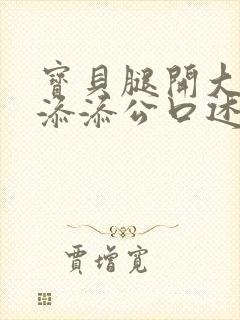 寶貝腿開大
添添公口述
賈增寬